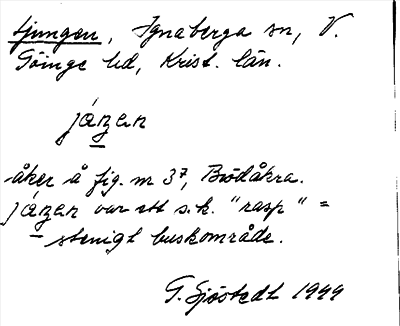 Ljungen, Ignaberga sn, V.
Göinge hd, Krist. län.
jåŋen
åker å fig. nr 37, Brödåkra.
jåŋen var ett s.k. "rasp" =
stenigt buskområde.
G. Sjöstedt 1949